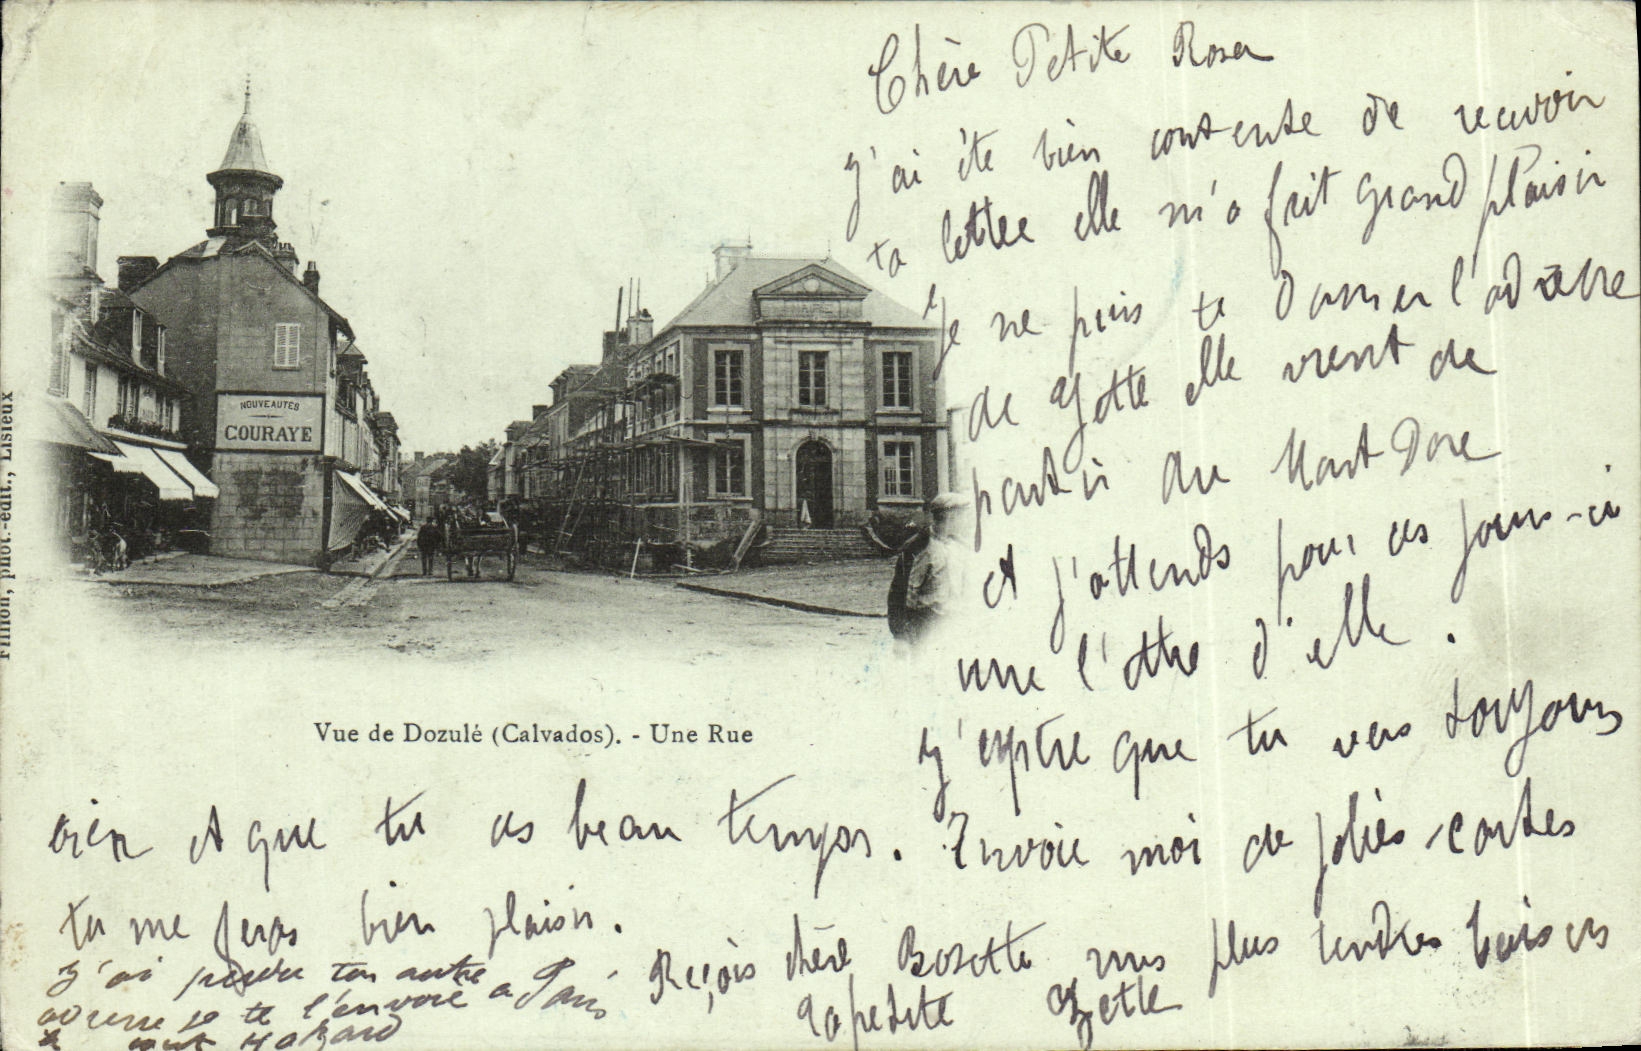 Chère Petite Rosa
J'ai été bien contente de recevoir
ta lettre elle m'a fait grand plaisir
Je ne puis te donner l'adresse
de Yette elle vient de
partir au Mont Dore
et j'attends pour ces jours-ci
une lettre d'elle.
J'espère que tu vas toujours
bien et que tu as beau temps. Envoie moi de jolies cartes
tu me feras bien plaisir.
Reçois chère Rosette mes plus tendres baisers
Ta petite
J'ai perdu ton autre
adresse je te l'envoie à Paris
à tout hazard
NOUVEAUTÉS
COURAYE
Vue de Dozulé (Calvados). - Une Rue
Filhon, phot.-édit., Lisieux